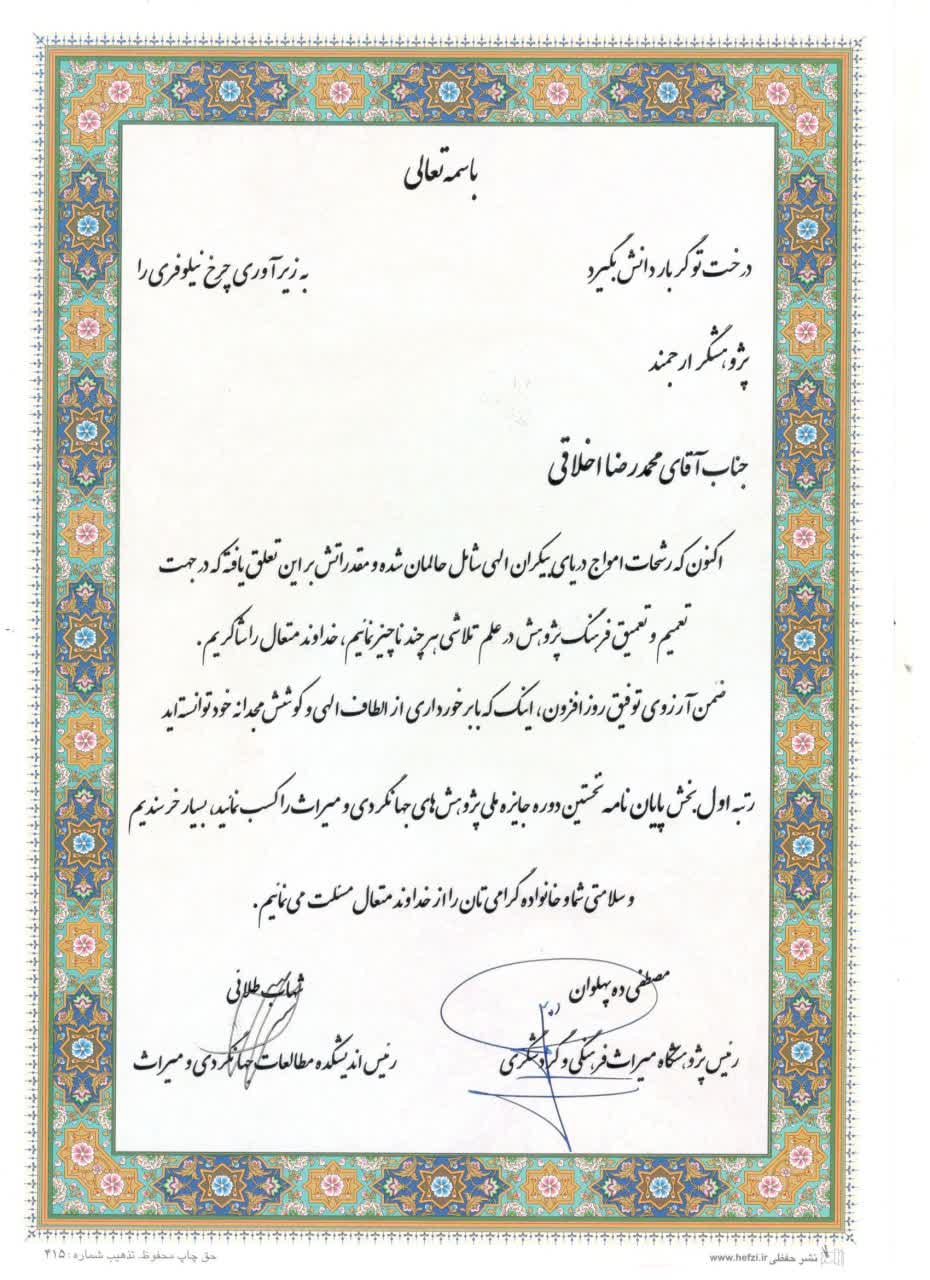 باسمه تعالی
درخت تو گر بار دانش بگیرد به زیر آوری چرخ نیلوفری را
پژوهشگر ارجمند
جناب آقای محمدرضا اخلاقی
اکنون که رشحات امواج دریای بیکران الهی شامل حالمان شده و مقدراتش بر این تعلق یافته که در جهت
تعمیم و تعمیق فرهنگ پژوهش در علم تلاشی هر چند ناچیز نمائیم، خداوند متعال را شاکریم.
ضمن آرزوی توفیق روزافزون، اینک که با برخورداری از الطاف الهی و کوشش مجدانه خود توانسته اید
رتبه اول بخش پایان نامه نخستین دوره جایزه ملی پژوهش های جهانگردی و میراث را کسب نمائید، بسیار خرسندیم
و سلامتی شما و خانواده گرامی تان را از خداوند متعال مسئلت می نمائیم.
مصطفی ده پهلوان
رئیس پژوهشگاه میراث فرهنگی و گردشگری
شهاب طلائی
رئیس اندیشکده مطالعات جهانگردی و میراث
نشر حفظی www.hefzi.ir
حق چاپ محفوظ. تذهیب شماره: ۴۱۵